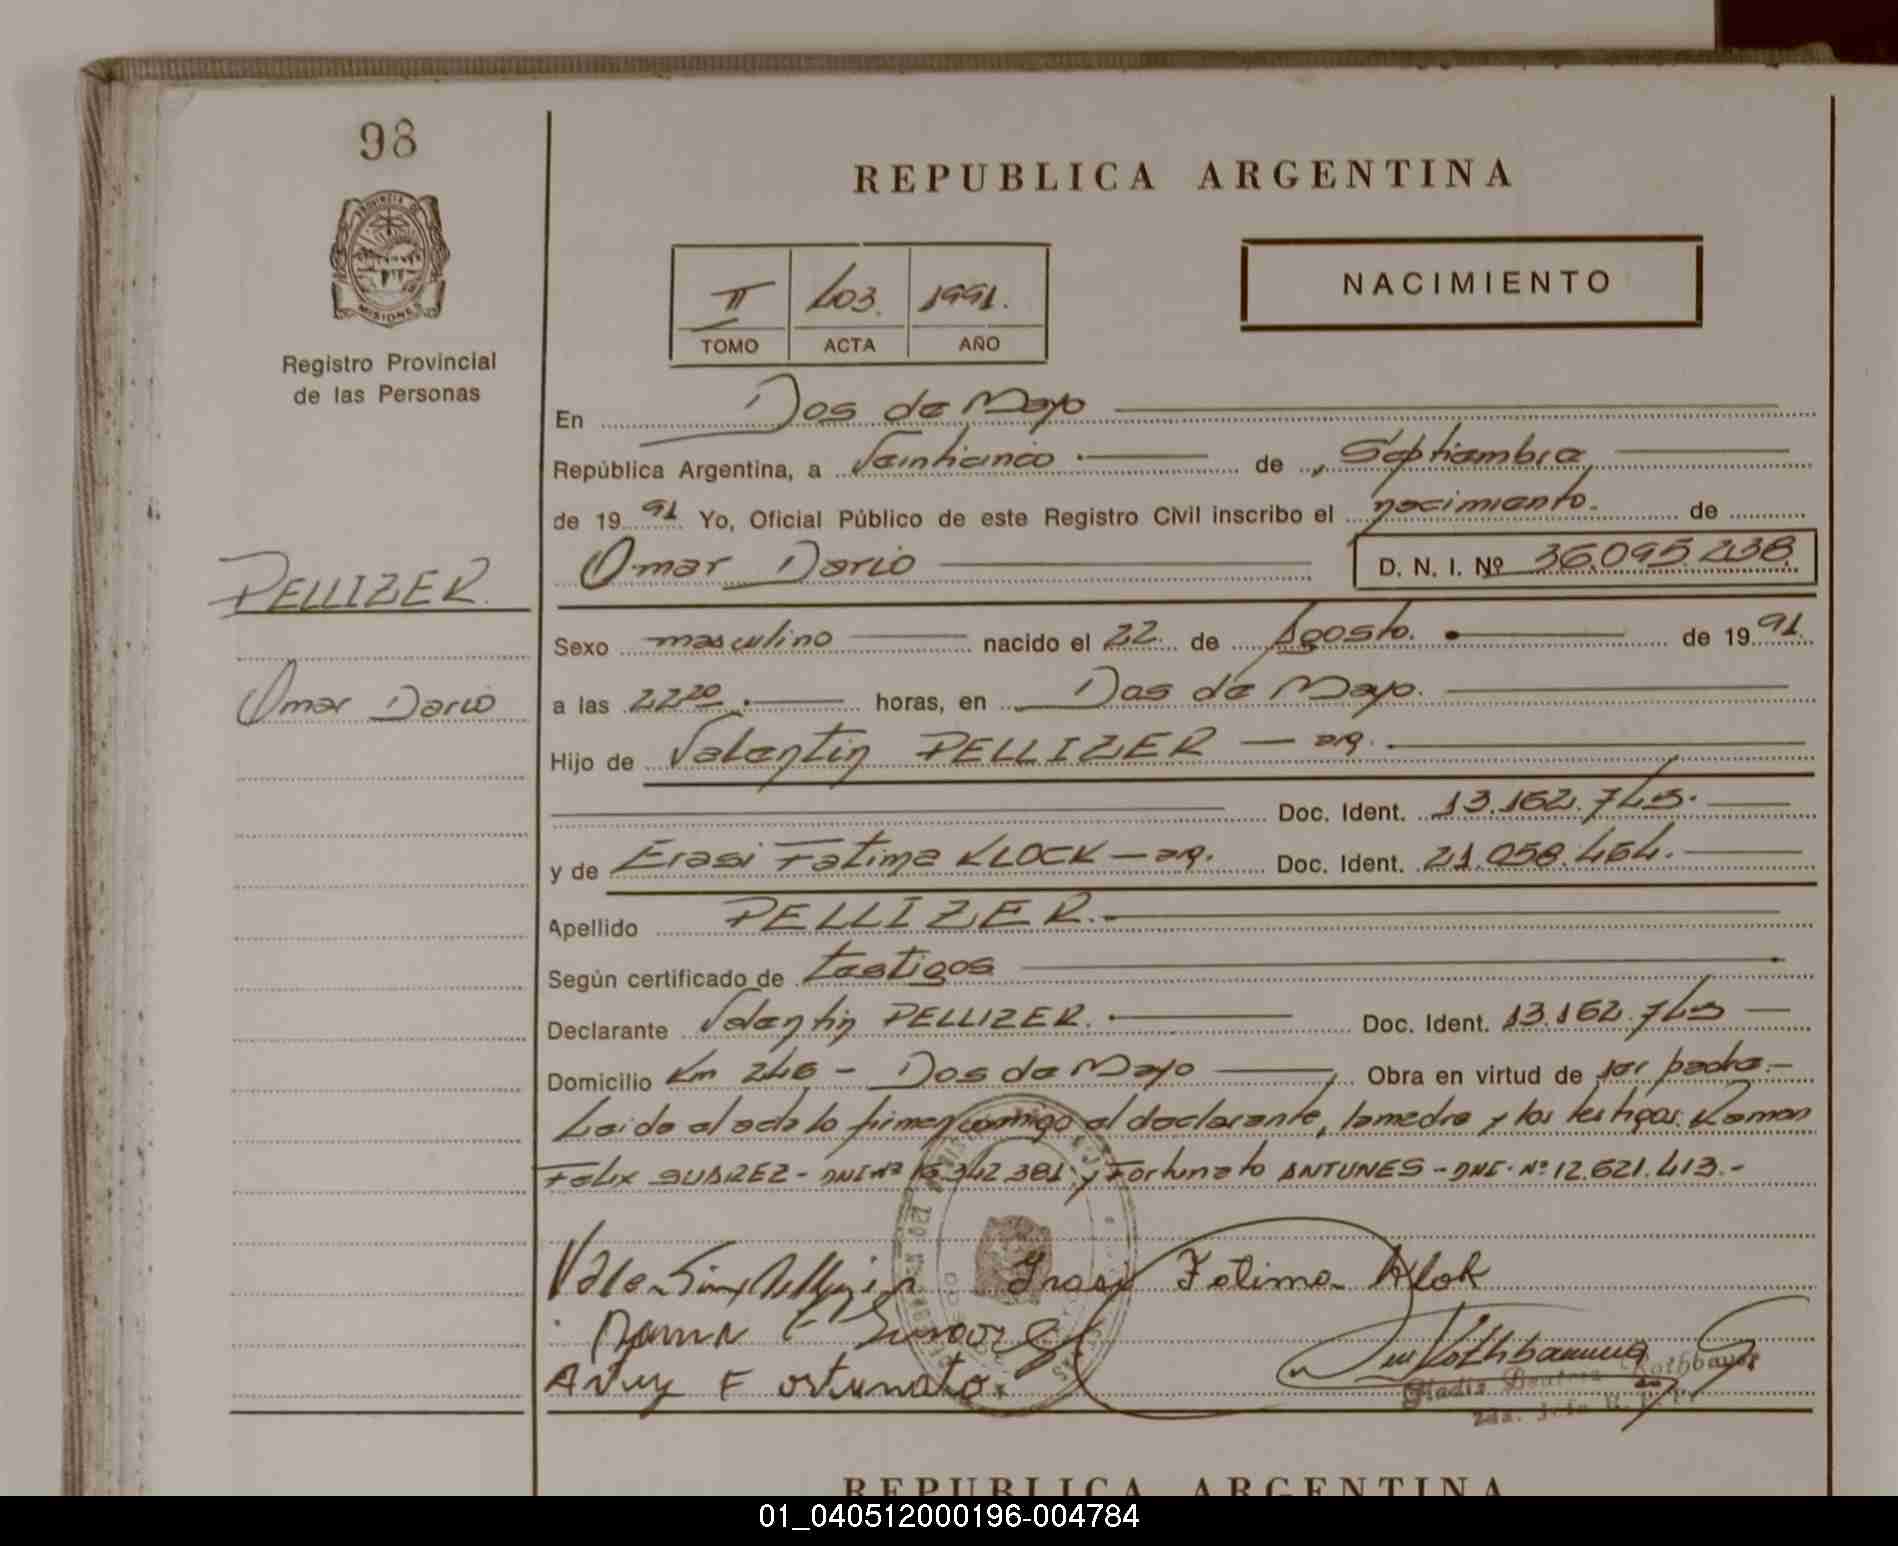 98
PROVINCIA DE
MISIONES
Registro Provincial
de las Personas
PELLIZER.
Omar Dario
REPUBLICA ARGENTINA
NACIMIENTO
II 403. 1991.
TOMO ACTA AÑO
En Dos de Mayo
República Argentina, a Veinticinco de Septiembre
de 19 91 Yo, Oficial Público de este Registro Civil inscribo el nacimiento. de
Omar Dario D. N. I. Nº 36.095.238
Sexo masculino nacido el 22 de Agosto. de 19 91.
a las 22 20 horas, en Dos de Mayo.
Hijo de Valentin PELLIZER — arg.
Doc. Ident. 13.162.743.
y de Erasi Fatima KLOCK — arg. Doc. Ident. 21.058.464.
Apellido PELLIZER.
Según certificado de testigos
Declarante Valentin PELLIZER. Doc. Ident. 13.162.743
Domicilio Km 246 - Dos de Mayo Obra en virtud de ser padre.
Leida el acta lo firman conmigo el declarante, la madre y los testigos: Ramon
Felix SUAREZ - DNI Nº 342.381 y Fortunato ANTUNES - DNI. Nº 12.621.413.-
Valentin Pellizer Irasi Fatima Klok
Ramon F Suarez
Fortunato
Rothbauer
Gladis Rothbauer
2da. Jefe
REPUBLICA ARGENTINA
01_040512000196-004784